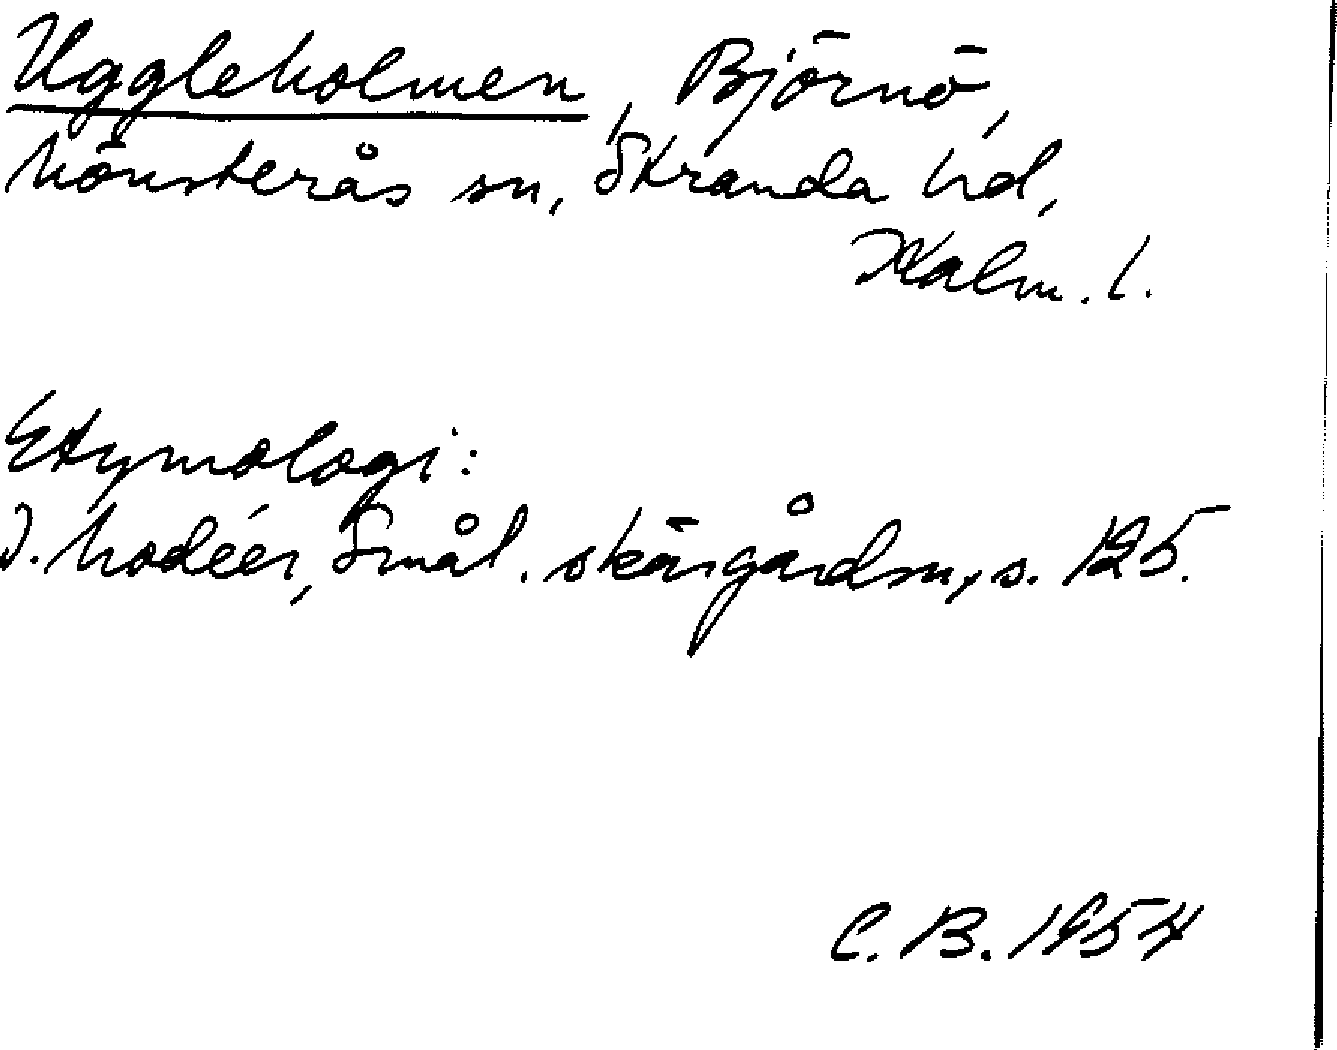 Uggleholmen, Björnö,
Mönsterås sn, Stranda hd,
Kalm. l.
Etymologi:
I. Modéer, Smål. skärgårdsn, s. 125.
C. B. 1954